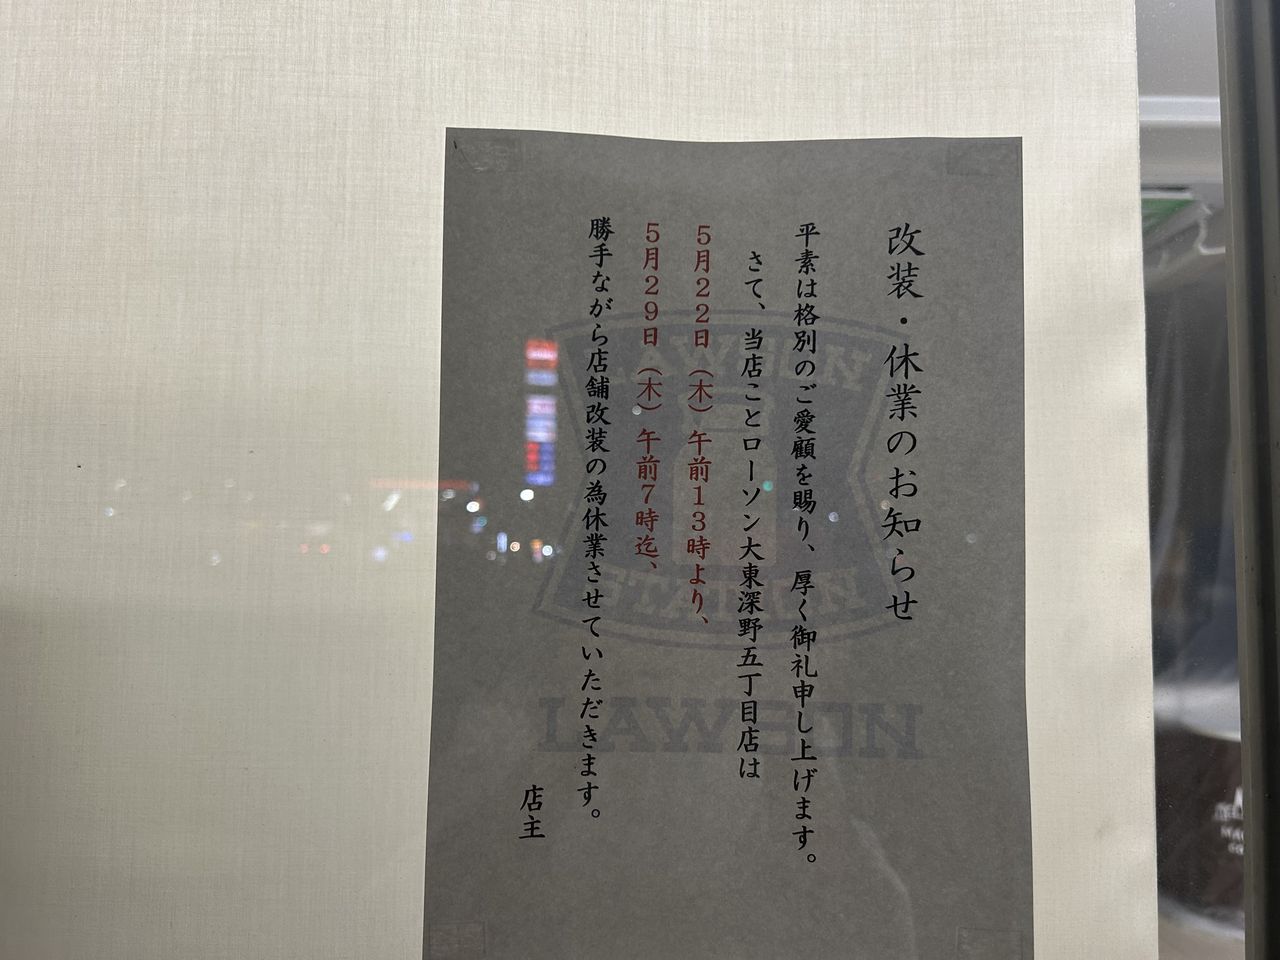 改装・休業のお知らせ
平素は格別のご愛顧を賜り、厚く御礼申し上げます。
さて、当店ことローソン大東深野五丁目店は
5月22日（木）午前13時より、
5月29日（木）午前7時迄、
勝手ながら店舗改装の為休業させていただきます。
店主
LAWSON
STATION
LAWSON